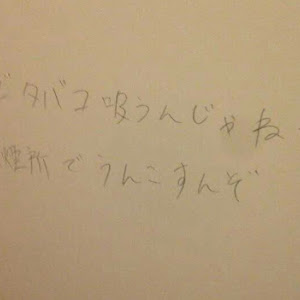 でタバコ吸うんじゃね
煙所でうんこすんぞ